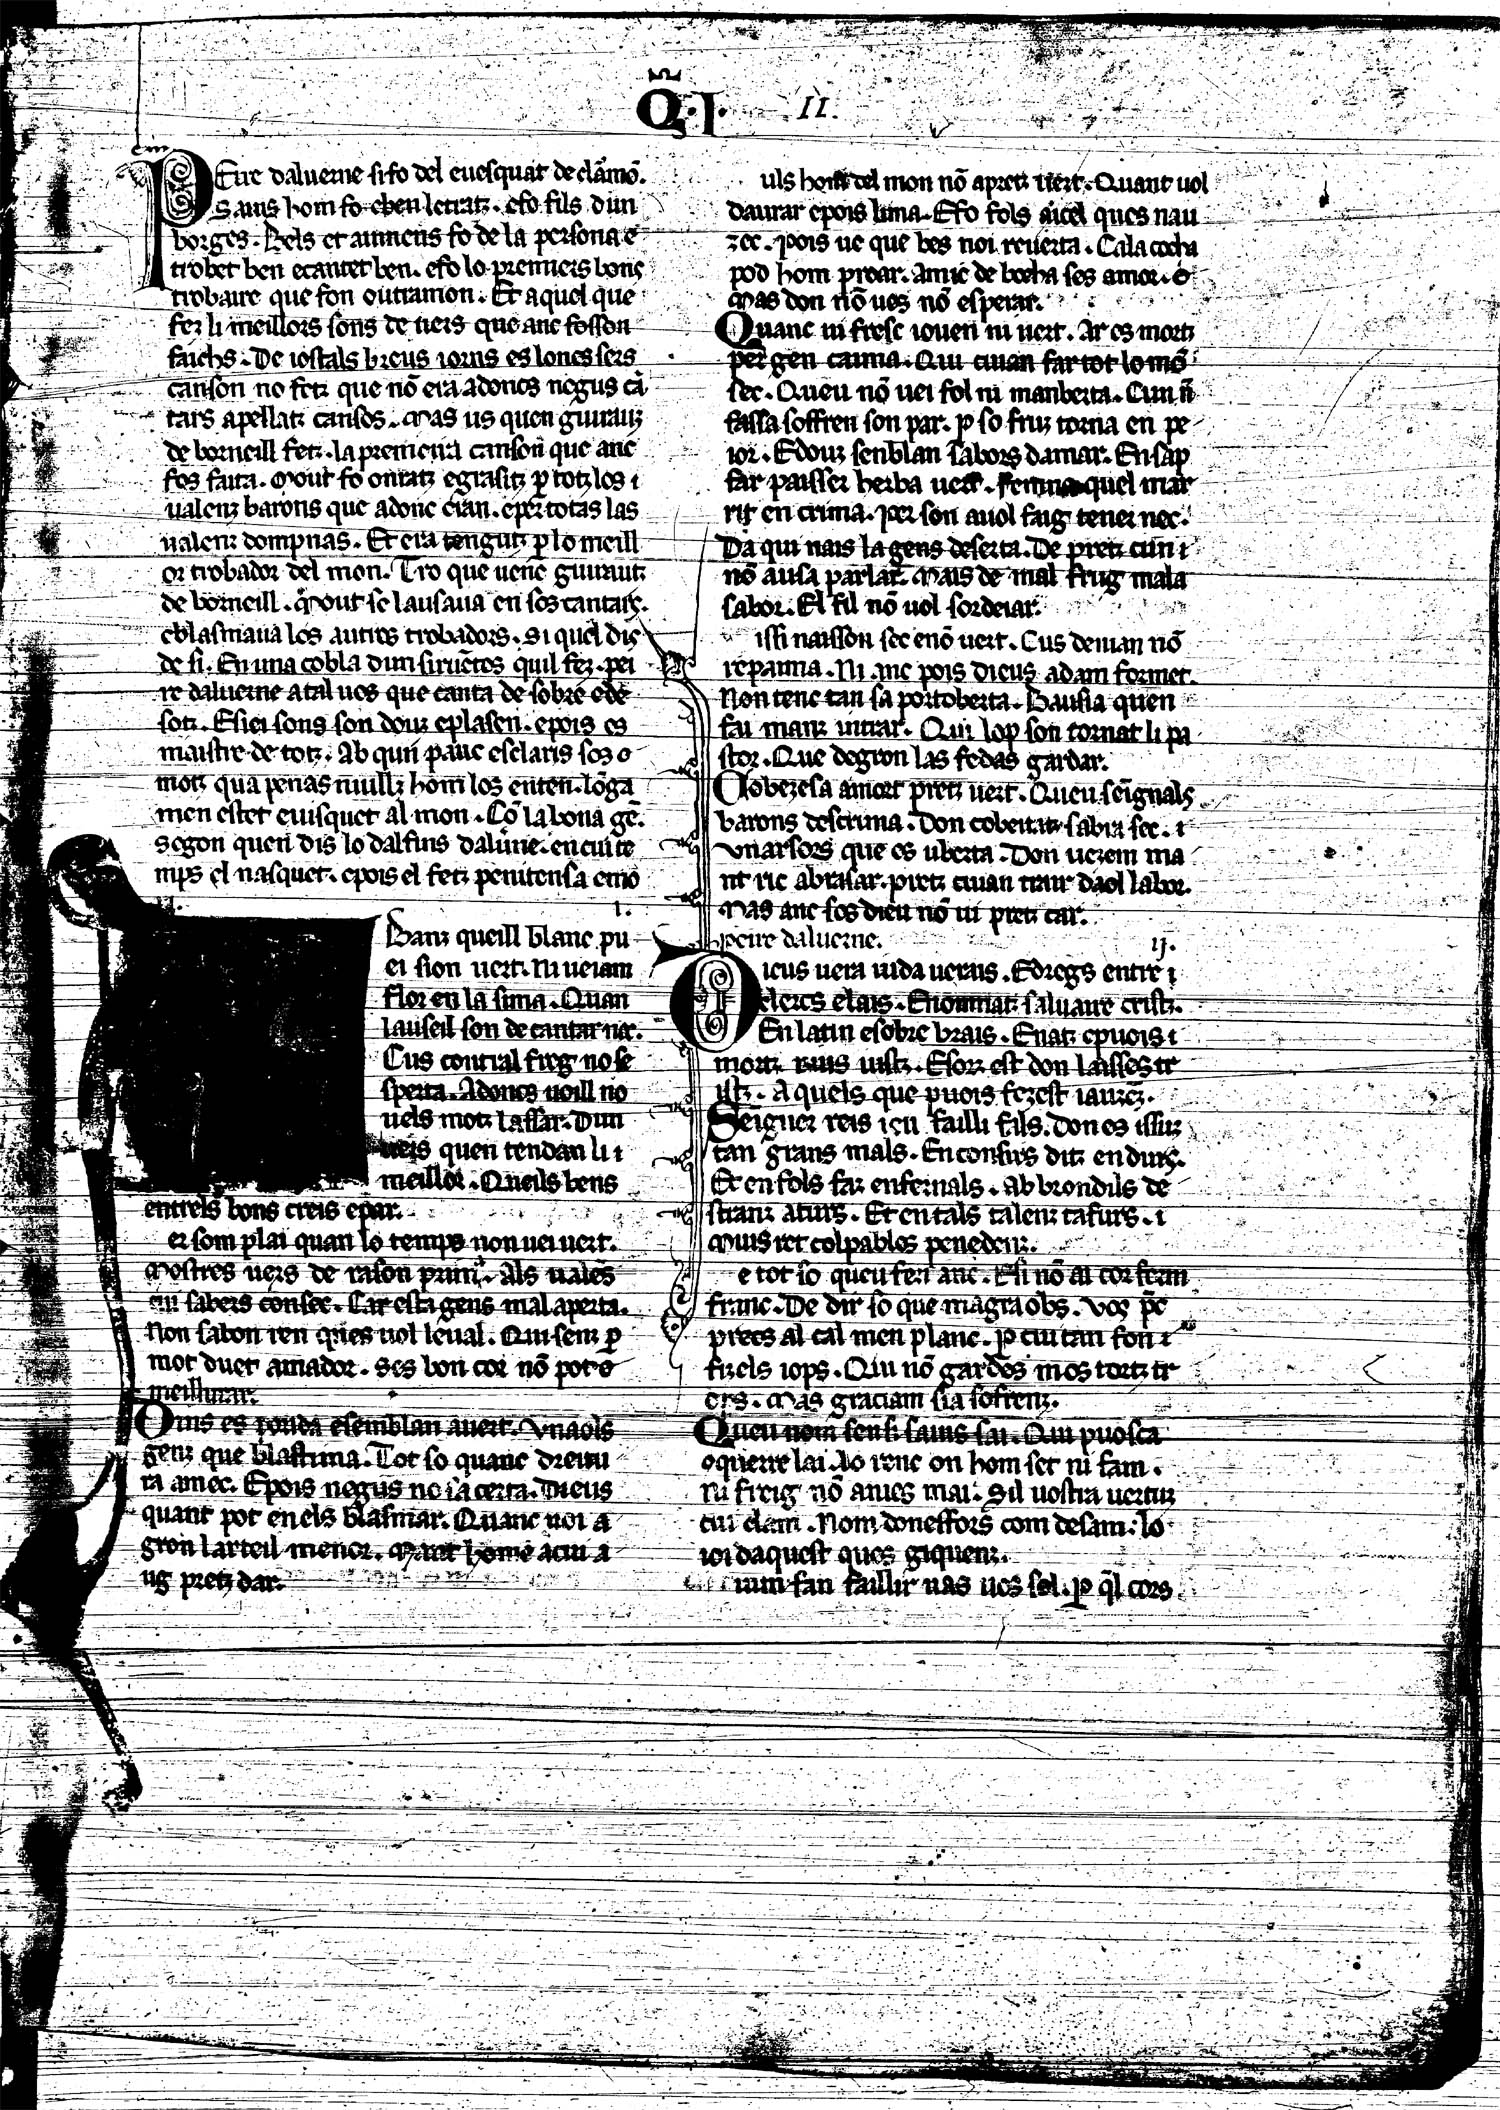 Q̃. I. II.
PEire daluerne si fo del euesquat de clãmõ.
Sauis hom fo eben letratz. efo fils dun
borges. Bels et auinens fo de la persona e
trobet ben ecantet ben. efo lo premiers bons
trobaire que fon outramon. Et aquel que
fez li meillors sons de uers que anc fosson
faichs. De iostals breus iorns es loncs sers
canson no fetz que nõ era adoncs negus cã
tars apellatz cansos. Mas us quen giurautz
de borneill fetz. la premeira canson que anc
fos faita. Mout fo onratz egrasitz ꝑ totz los
ualenz barons que adonc eran. eper totas las
ualenz dompnas. Et era tengutz ꝑ lo meill
or trobador del mon. Tro que uenc guirautz
de borneill. Mout se lausaua en sos cantars.
eblasmaua los autres trobadors. si quel dis
de si. En una cobla dun siruẽtes quil fez. pei
re daluerne a tal uos que canta de sobre ede
sotz. E siei sons son douz eplasen. epois es
maistre de totz. Ab qun pauc esclaris sos
motz qua penas nuillz hom los enten. lõga
men estet euisquet al mon. Cõ la bona gẽ.
segon quen dis lo dalfins daluẽne. en cui te
mps el nasquet. epois el fetz penitensa emo
I.
Banz queill blanc pu
ei sion uert. Ni ueiam
flor en la sima. Quan
lauseil son de cantar nec.
Cus contral freg no se
sperta. Adoncs uoill no
uels motz lassar. Dun
uers quen tendan li
meillor. Queils bens
entrels bons creis epar.
er som plai quan lo temps non uei uert.
Mostres uers de rason prim. Als ualẽs
cui sabers consec. Car esta gens mal aperta.
Non sabon ren ques uol leual. Qui senz ꝑ
mot duet amador. ses bon cor nõ pot
meillurar.
Quis es ronda esemblan auert. Vnaols
genz que blastima. Tot so quanc dreitu
ra amec. Epois negus no ia certa. Dieus
quant pot en els blasmar. Quanc uoi a
gron larteil menor. Mant home a cui a
ug pretz dar.
uls hom del mon nõ apretz uert. Quant uol
daurar epois lima. Efo fols aicel ques nau
zec. Pois ue que bes noi reuerta. Cala cocha
pod hom proar. Amic de bocha ses amor.
Mas don nõ ues nõ esperar.
Quanc ui fresc iouen ni uert. Ar es mortz
per gen caima. Qui cuian far tot lo mõ
sec. Queu nõ uei fol ni manberta. Cun
fassa soffren son par. ꝑ so fruz torna en pe
ior. Edouz senblan sabors damar. En sap
far paisser herba uert. Femna quel mar
rit en crima. Per son auol faig tener nec.
Da qui nais la gens deserta. De pretz cun
nõ ausa parlar. Mais de mal frug mala
sabor. El fil nõ uol sordeiar.
issi naisson sec enõ uert. Cus deman nõ
repaima. Ni anc pois dieus adam formet.
Non tenc tan sa portoberta. Bausia quen
fai manz intrar. Qui lop son tornat li pa
stor. Que degron las fedas gardar.
Cobezesa amort pretz uert. Queu seignals
barons descrima. Don cobeitatz sabia sec.
Vnarsors que es uberta. Don uezem ma
nt ric abrasar. pretz cuian trair daol labor.
Mas anc sos dieu nõ ui pretz car.
peire daluerne. ij.
Dieus uera uida uerais. Edregs entre
clercs elais. Enominatz saluaire cristz.
En latin esobre brais. Enatz epuois
mortz uius uistz. Esorz est don laisses tr
istz. Aquels que puois fezest iauzẽz.
Seigner reis ieu failli fils. Don es issuz
tan grans mals. En consirs ditz en durs.
Et en fols faz enfernals. Ab brondils de
stranz aturs. Et en tals talenz tafurs.
Muis ret colpables penedenz.
e tot so queu feri anc. Esi nõ ai cor ferm
franc. De dir so que magra obs. Vos pẽc
precs al cal men planc. ꝑ cui tan fon
fuels iops. Qui nõ gardes mos tortz tr
ops. Mas graciam sia sofrenz.
Queu nom senti sains sai. Qui puosca
oquerre lai. Lo renc on hom set ni fam.
ni freig nõ anies mai. Sil uostra uertuz
cui clam. Nom donessors com desam. lo
ioi daquest ques giquenz.
uim fan faillir uas uos sol. ꝑ q̃l cors